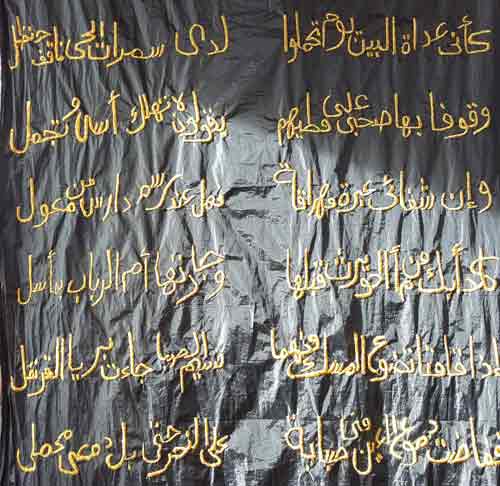 كأني غداة البين يوم تحملوا لدى سمرات الحي ناقف حنظل
وقوفا بها صحبي علي مطيهم يقولون لا تهلك أسى وتجمل
وإن شفائي عبرة مهراقة فهل عند رسم دارس من معول
كدأبك من أم الحويرث قبلها وجارتها أم الرباب بمأسل
إذا قامتا تضوع المسك منهما نسيم الصبا جاءت بريا القرنفل
ففاضت دموع العين مني صبابة على النحر حتى بل دمعي محملي